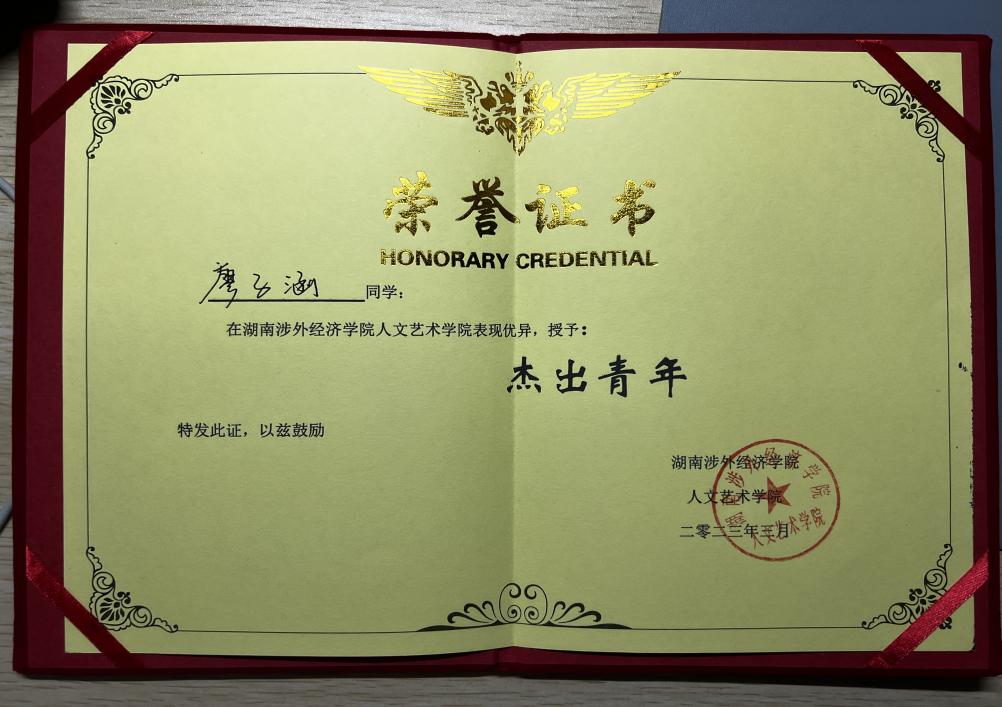 荣誉证书
HONORARY CREDENTIAL
廖子涵同学：
在湖南涉外经济学院人文艺术学院表现优异，授予：
杰出青年
特发此证，以兹鼓励
湖南涉外经济学院
人文艺术学院
二零二三年三月
湖南涉外经济学院
人文艺术学院